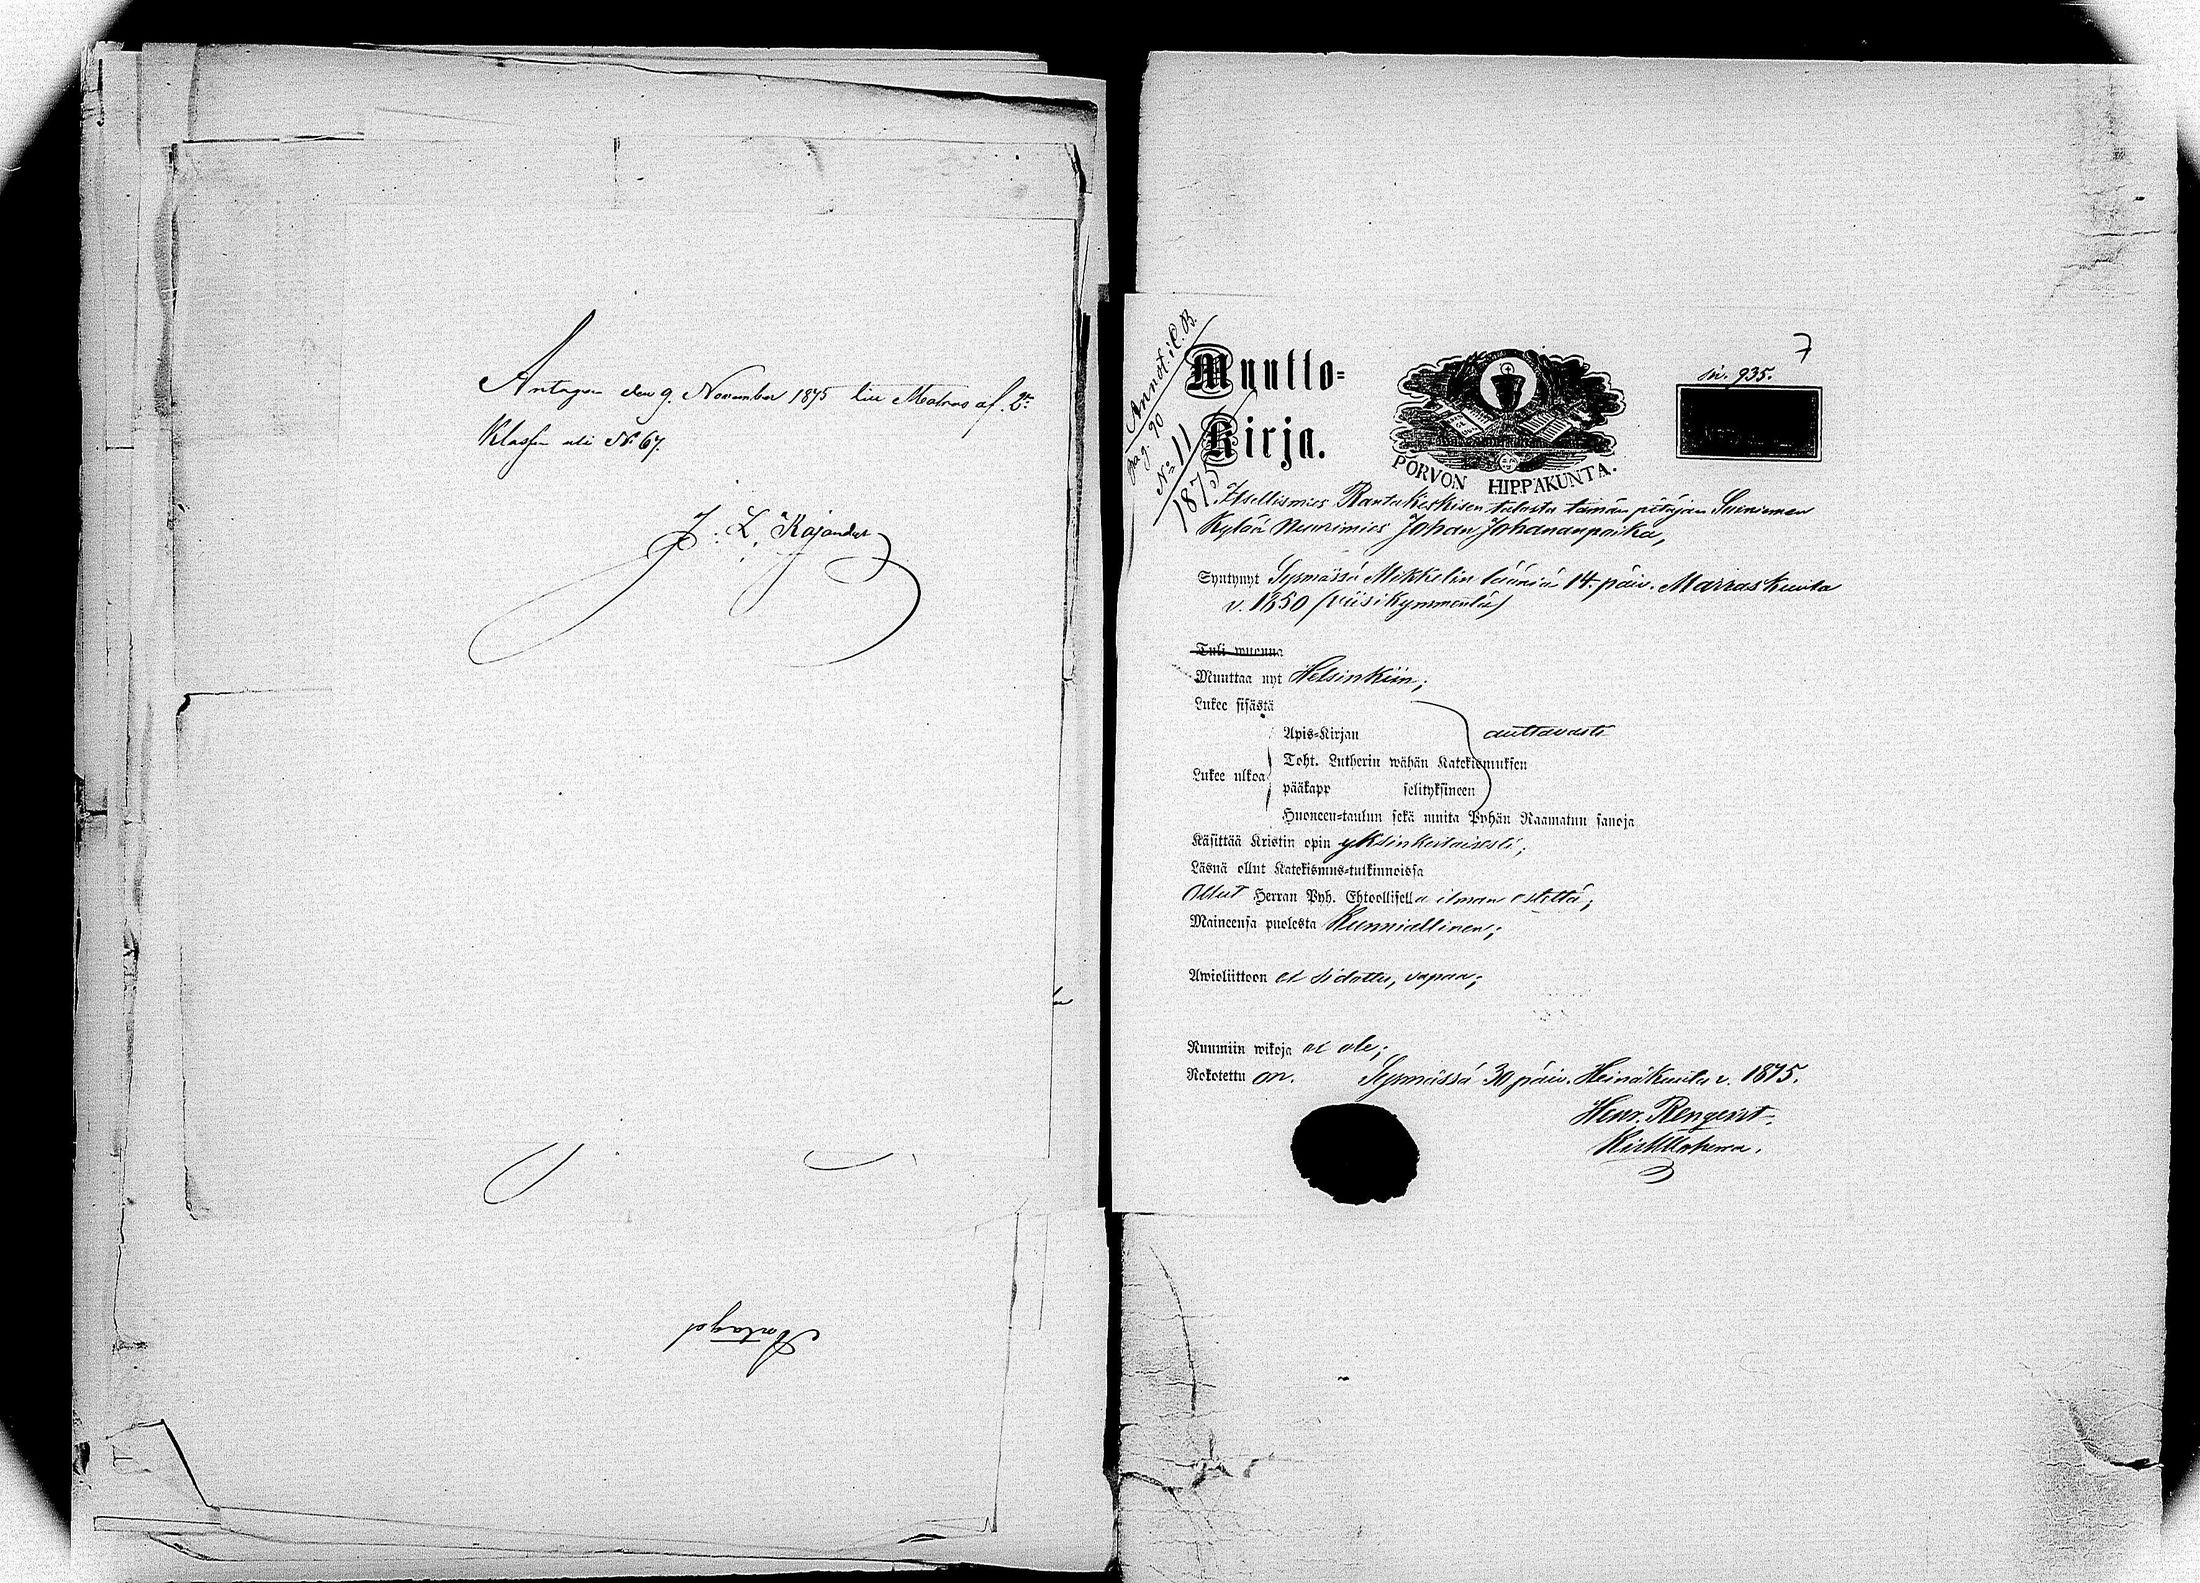 Antagen den 9. November 1875 till Matros af 2:
Klassen uti No 67.
J. L. Kajander
Antages
Annot. i C. B.
pag. 90
No 11
1875
7
siv. 935.
Muutto=
Kirja.
PORVON HIPPAKUNTA.
Itsellismies Rantakeskisen talosta tämän pitäjän
Kylää Nuorimies Johan Johananpoika,
Syntynyt Sysmässä Mikkelin lääniä 14. päiv. Marraskuuta
v. 1850 (viisikymmentä)
Tuli wuonna
Muuttaa nyt Helsinkiin;
Lukee sisästä
Apis=Kirjan auttavasti
Toht. Lutherin wähän Katekismuksen
Lukee ulkoa
pääkapp selityksineen
Huoneen=taulun sekä muita Pyhän Raamatun sanoja
Käsittää Kristin opin yksinkertaisesti;
Läsnä ollut Katekismus=tutkinnoissa
Ollut Herran Pyh. Ehtoollisella ilman estettä;
Maineensa puolesta Kunniallinen;
Awioliittoon ei sidottu, vapaa;
Ruumiin wikoja ei ole;
Rokotettu on. Sysmässä 30 päiv. Heinäkuuta v. 1875.
Henr.